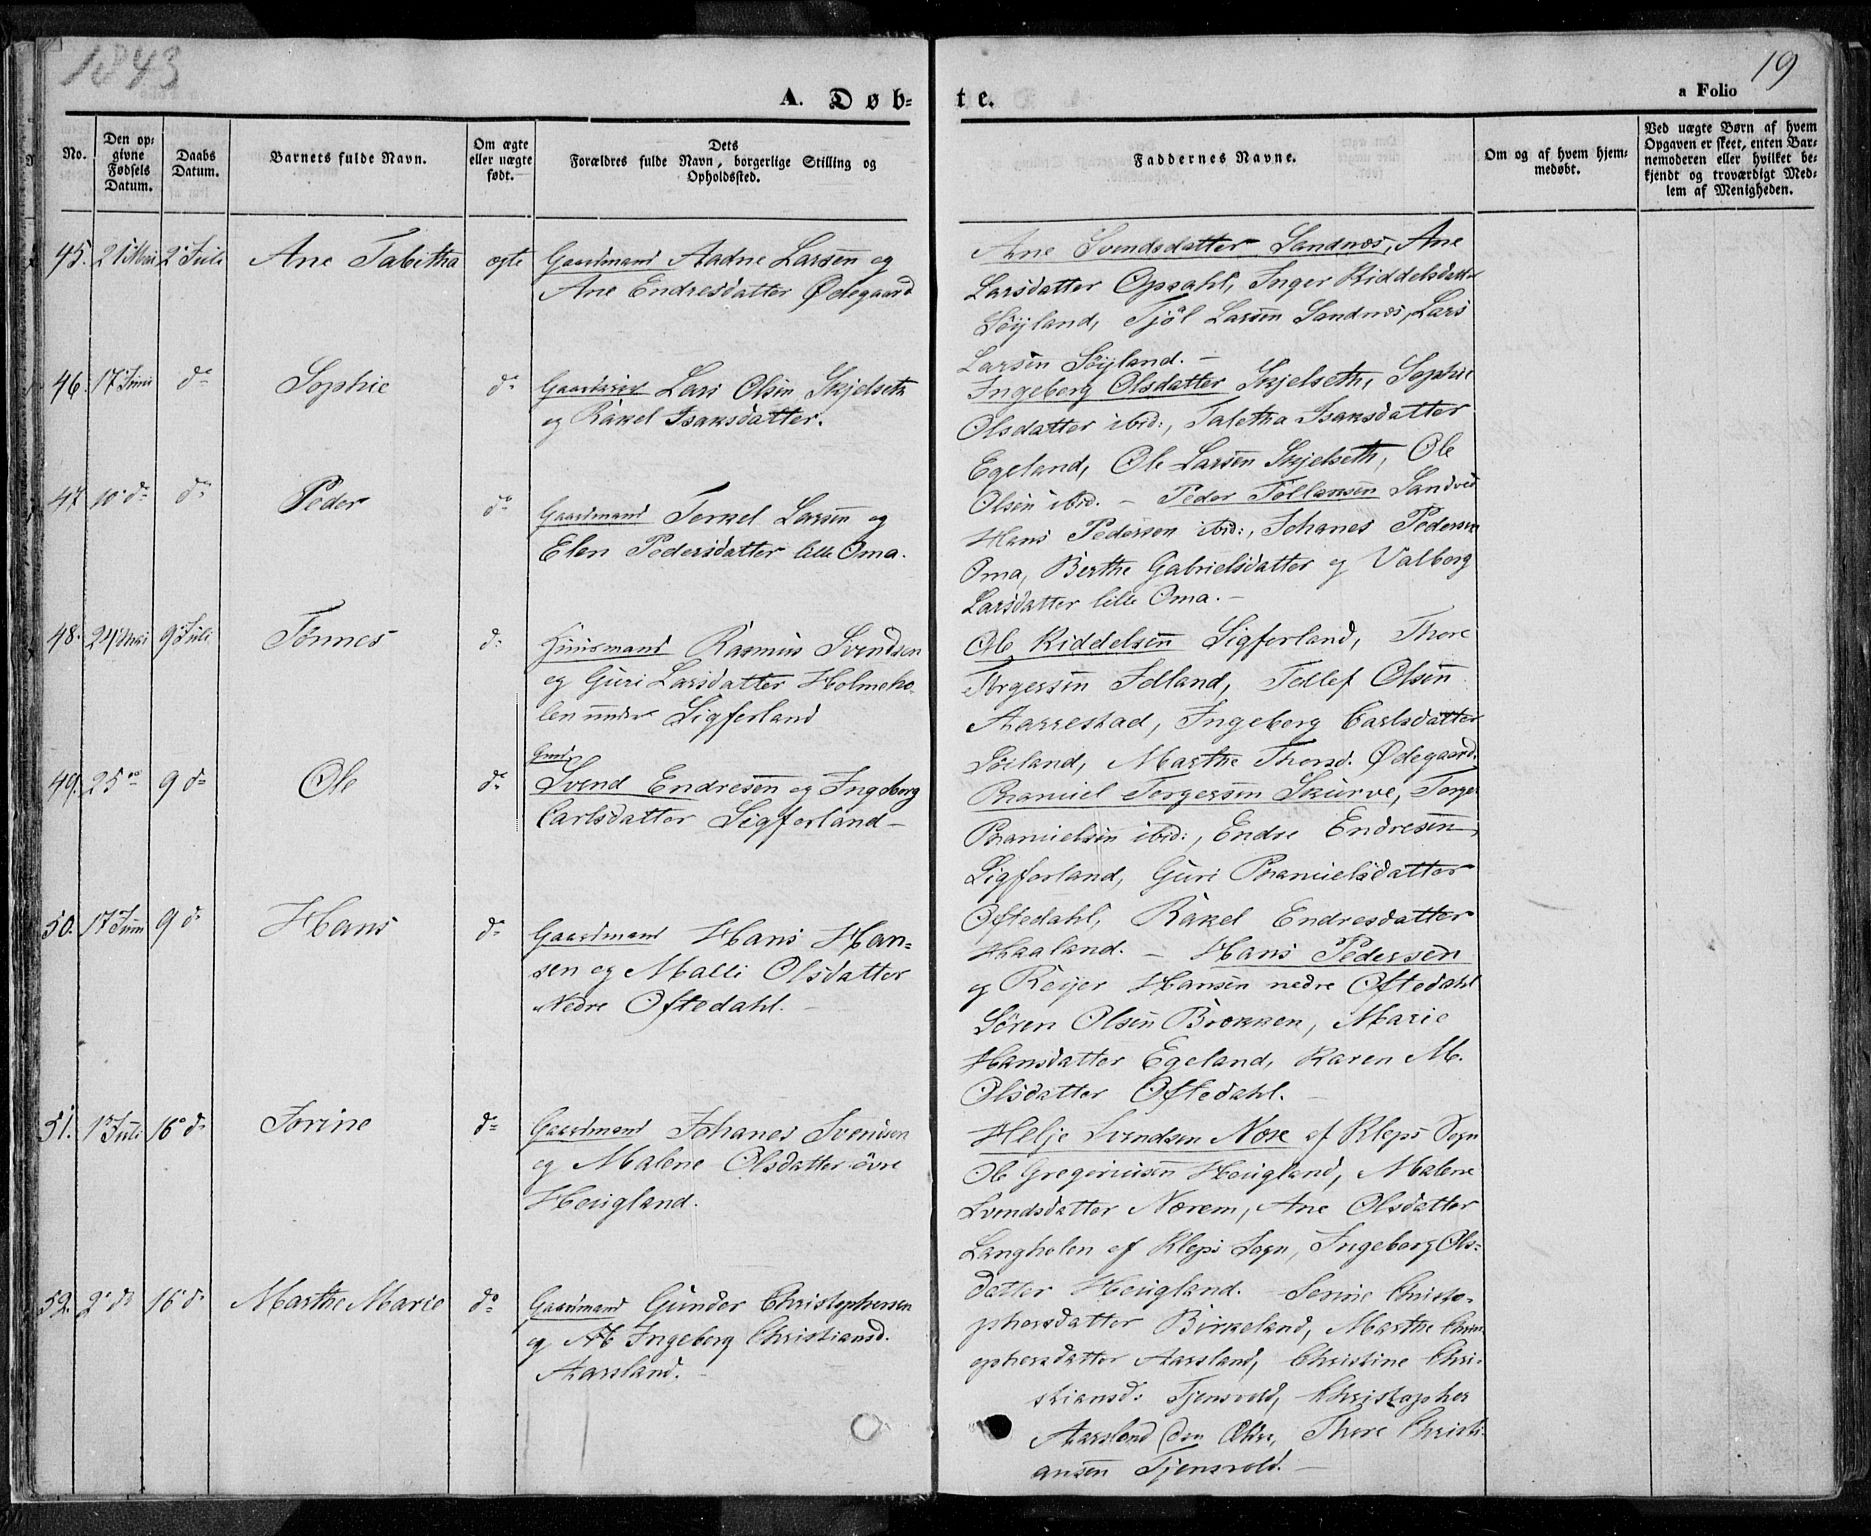 1843
19
A. Døb-
te.
a Folio
No.
Den op-
givne
Fødsels
Datum.
Daabs
Datum.
Barnets fulde Navn.
Om ægte
eller uægte
født.
Dets
Forældres fulde Navn, borgerlige Stilling og
Opholdssted.
Faddernes Navne.
Om og af hvem hjem-
medøbt.
Ved uægte Børn af hvem
Opgaven er skeet, enten Bar-
nemoderen eller hvilket be-
kjendt og troværdigt Med-
lem af Menigheden.
45. 21 Mai 2 Juli Ane Tabitha ægte Gaardmand Aadne Larsen og
Ane Endresdatter Ødegaard
Ane Svendsdatter Sandnæs, Ane
Larsdatter Opsahl, Inger Kiddelsdatter
Söyland, Tjöl Larsen Sandnæs, Lars
Larsen Söyland. –
46. 17 Juni do Sophie do Lars Olsen Skjelseth
og Rakel Isaksdatter.
Ingeborg Olsdatter Skjelseth, Sophie
Olsdatter ibid:, Taletha Isaksdatter
Egeland, Ole Larsen Skjelseth, Ole
Olsen ibid. –
47. 10 do do Peder do Gaardmand Terkel Larsen og
Elen Pedersdatter lille Oma.
Peder Tollaksen Sandved
Hans Pedersen ibid:, Johanes Pedersen
Oma, Berthe Gabrielsdatter og Valborg
Larsdatter lille Oma. –
48. 24 Mai 9 Juli Tönnes do Huusmand Rasmus Svendsen
og Guri Larsdatter Holmeho-
len under Sigferland
Ole Kiddelsen Sigferland, Thore
Torgersen Selland, Tollef Olsen
Aarrestad, Ingeborg Carlsdatter
Söiland, Marthe Thorsd. Ødegaard.
49. 25 do 9 do Ole do Gmd
Svend Endresen og Ingeborg
Carlsdatter Sigferland –
Phanuel Torgersen Skurve, Torger
Phanuelsen ibid:, Endre Endresen
Sigferland, Guri Phanuelsdatter
Oftedahl, Rakel Endresdatter
Haaland. –
50. 17 Juni 9 do Hans do Gaardmand Hans Han-
sen og Malli Olsdatter
Nedre Oftedahl. –
Hans Pedersen
og Reijer Hansen nedre Oftedahl
Sören Olsen Brekken, Marie
Hansdatter Egeland, Karen M.
Olsdatter Oftedahl. –
51. 1 Juli 16 do Sorine do Gaardmand Johanes Svendsen
og Malene Olsdatter övre
Heugland.
Helje Svendsen Nose af Klepps Sogn
Ole Gregoriusen Heugland, Malene
Svendsdatter Norem, Ane Olsdatter
Langholen af Klepps Sogn, Ingeborg Ols-
datter Heugland. –
52. 2 do 16 do Marthe Marie do Gaardmand Gunder Christophersen
og Ingeborg Christiansd.
Aarsland. –
Serine Christo-
phersdatter Birkeland, Marthe Christ-
ophersdatter Aarsland, Christine Chri-
stiansd: Tjensvold, Christopher
Aarsland den Ældre, Thore Christi-
ansen Tjensvold. –